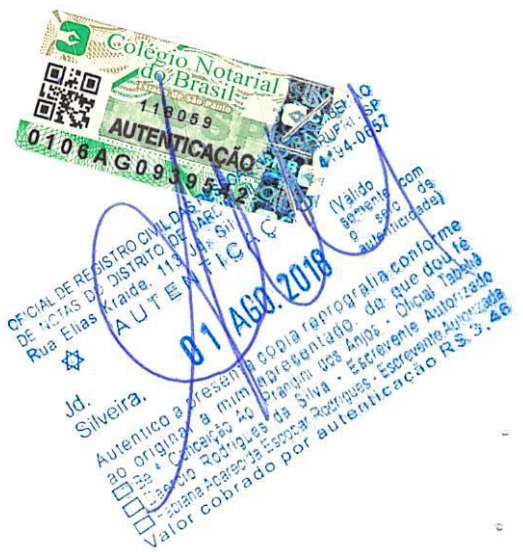 Colégio Notarial
do Brasil
Estado de São Paulo
118059
AUTENTICAÇÃO
0106AG0939542
OFICIAL DE REGISTRO CIVIL DAS
DE NOTAS DO DISTRITO DE
Rua Elias
AUTENTICAÇ
(Válido
somente com
o selo de
autenticidade)
01 AGO. 2018
Jd.
Silveira,
Autentico a presente copia reprografia conforme
ao original a mim apresentado, do que dou fé
Conceição Ap. Frangini dos Anjos - Oficial Tabeliã
Rodrigues da Silva - Escrevente Autorizado
Fabiana Aparecida Escobar Rodrigues - Escrevente Autorizada
Valor cobrado por autenticação R$. 3,46